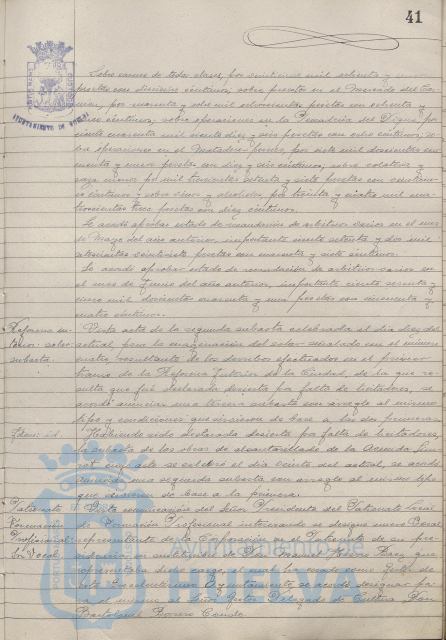 41
AYUNTAMIENTO DE HUELVA
sobre carnes de todas clases, por veinticinco mil setenta y
pesetas con diecisiete céntimos; sobre puestos en el Mercado del Car-
men, por cuarenta y ocho mil setecientas pesetas con ochenta y
céntimos; sobre operaciones en la Pescadería del
cuarenta mil veinte diez y seis pesetas con ocho céntimos; so-
bre operaciones en el Matadero por siete mil doscientas cin-
cuenta y nueve pesetas con diez y seis céntimos; sobre
por mil trescientas setenta y siete pesetas con
céntimos y sobre vinos y alcoholes, por treinta y cuatro mil cua-
trocientas tres pesetas con diez céntimos.
Se acordó aprobar estado de recaudación de arbitrios varios en el mes
de Marzo del año anterior, importante ciento setenta y dos mil
veintisiete pesetas con noventa y siete céntimos.
Se acordó aprobar estado de recaudación de arbitrios varios en
el mes de Junio del año anterior, importante ciento sesenta y
cinco mil doscientas cuarenta y una pesetas con cincuenta y
cuatro céntimos.
Reforma in-
terior solar
subasta.
Vista acta de la segunda subasta celebrada el día diez del
actual para la enajenación del solar señalado con el número
cuatro, resultante de los derribos efectuados en el primer
tramo de la Reforma Interior de la Ciudad, de la que re-
sulta que fué declarada desierta por falta de licitadores, se
acordó anunciar una tercera subasta con arreglo al mismo
tipo y condiciones que sirvieron de base a las dos primeras.
Idem: id.
Habiendo sido declarada desierta por falta de licitadores,
la subasta de las obras de alcantarillado de la Avenida
cuyo acto se celebró el día veinte del actual, se acordó
anunciar una segunda subasta con arreglo al mismo tipo
que sirvieron de base a la primera.
Patronato
Formación
Profesional
Vocal.
Vista comunicación del Señor Presidente del Patronato Local
de Formación Profesional interesando se designe nuevo Vocal
representante de la Corporación en el Patronato de su pre-
sidencia en sustitución de Don que
representaba dicho cargo, el cual ha cesado como Gestor de
este Excelentísimo Ayuntamiento, se acordó designar pa-
ra el mismo al Señor Gestor Delegado de Cultura Don
Bartolomé Borrero Conde.
Ayuntamiento de
HUELVA